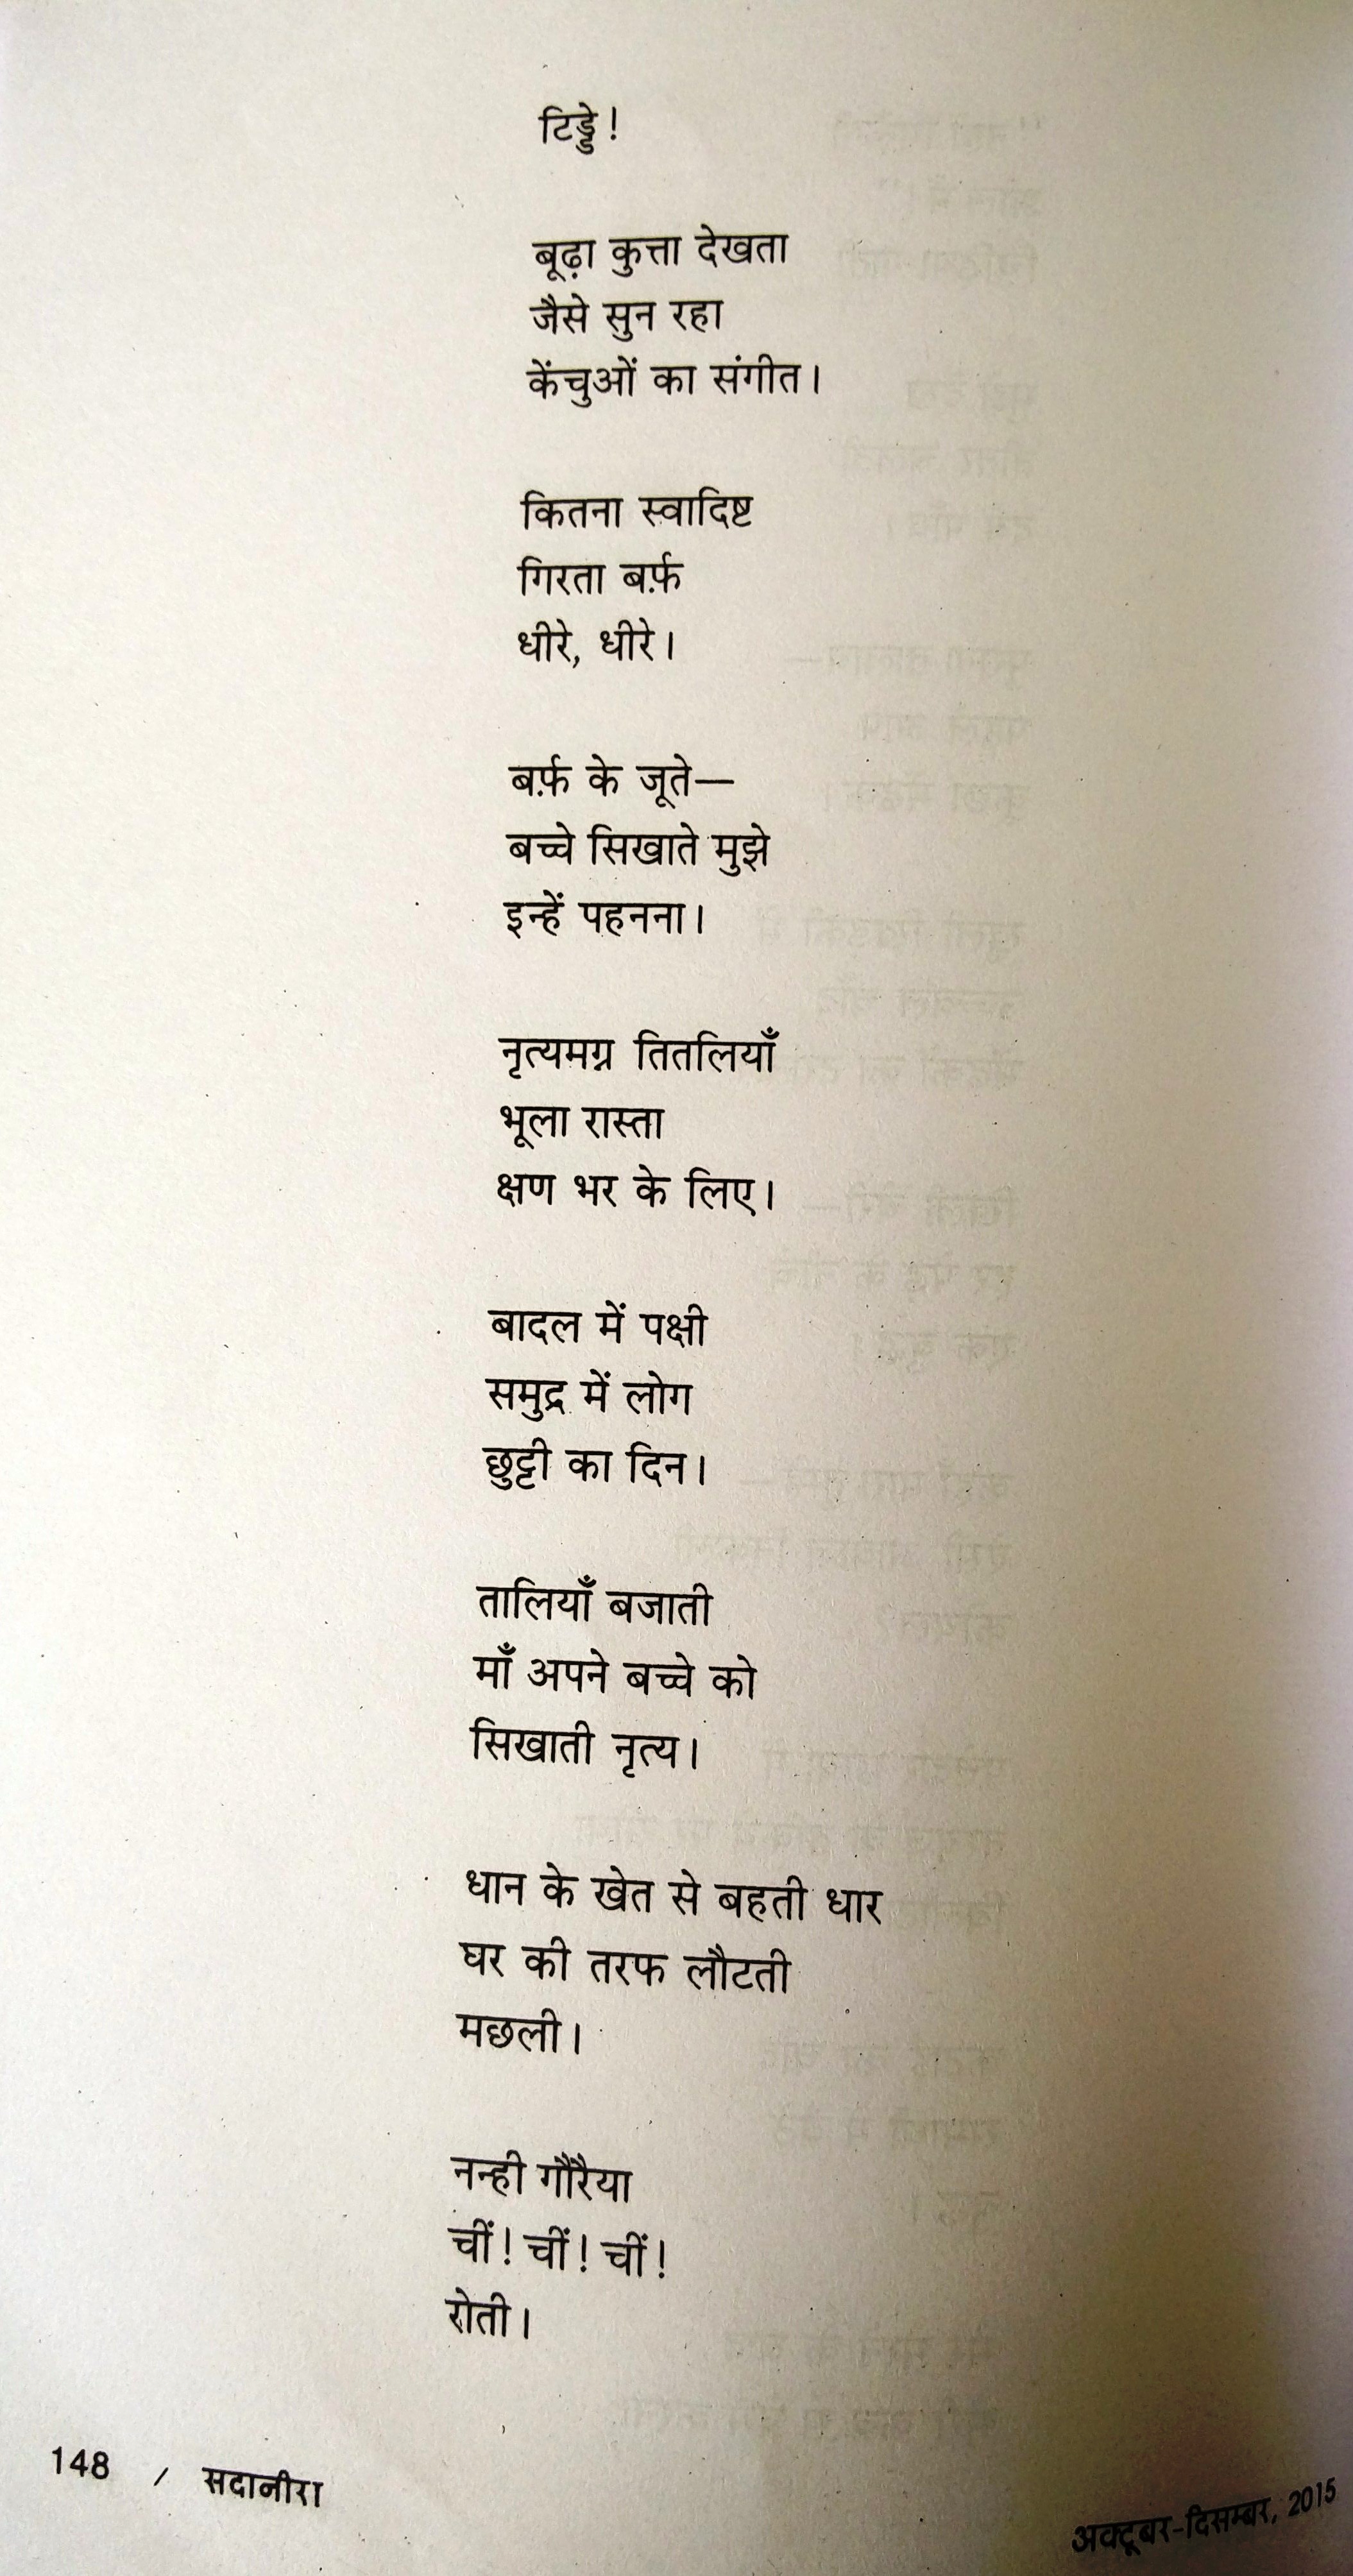 टिड्डे!
बूढ़ा कुत्ता देखता
जैसे सुन रहा
केंचुओं का संगीत।
कितना स्वादिष्ट
गिरता बर्फ़
धीरे, धीरे।
बर्फ़ के जूते—
बच्चे सिखाते मुझे
इन्हें पहनना।
नृत्यमग्न तितलियाँ
भूला रास्ता
क्षण भर के लिए।
बादल में पक्षी
समुद्र में लोग
छुट्टी का दिन।
तालियाँ बजाती
माँ अपने बच्चे को
सिखाती नृत्य।
धान के खेत से बहती धार
घर की तरफ लौटती
मछली।
नन्ही गौरैया
चीं! चीं! चीं!
रोती।
148 / सदानीरा
अक्टूबर-दिसम्बर, 2015